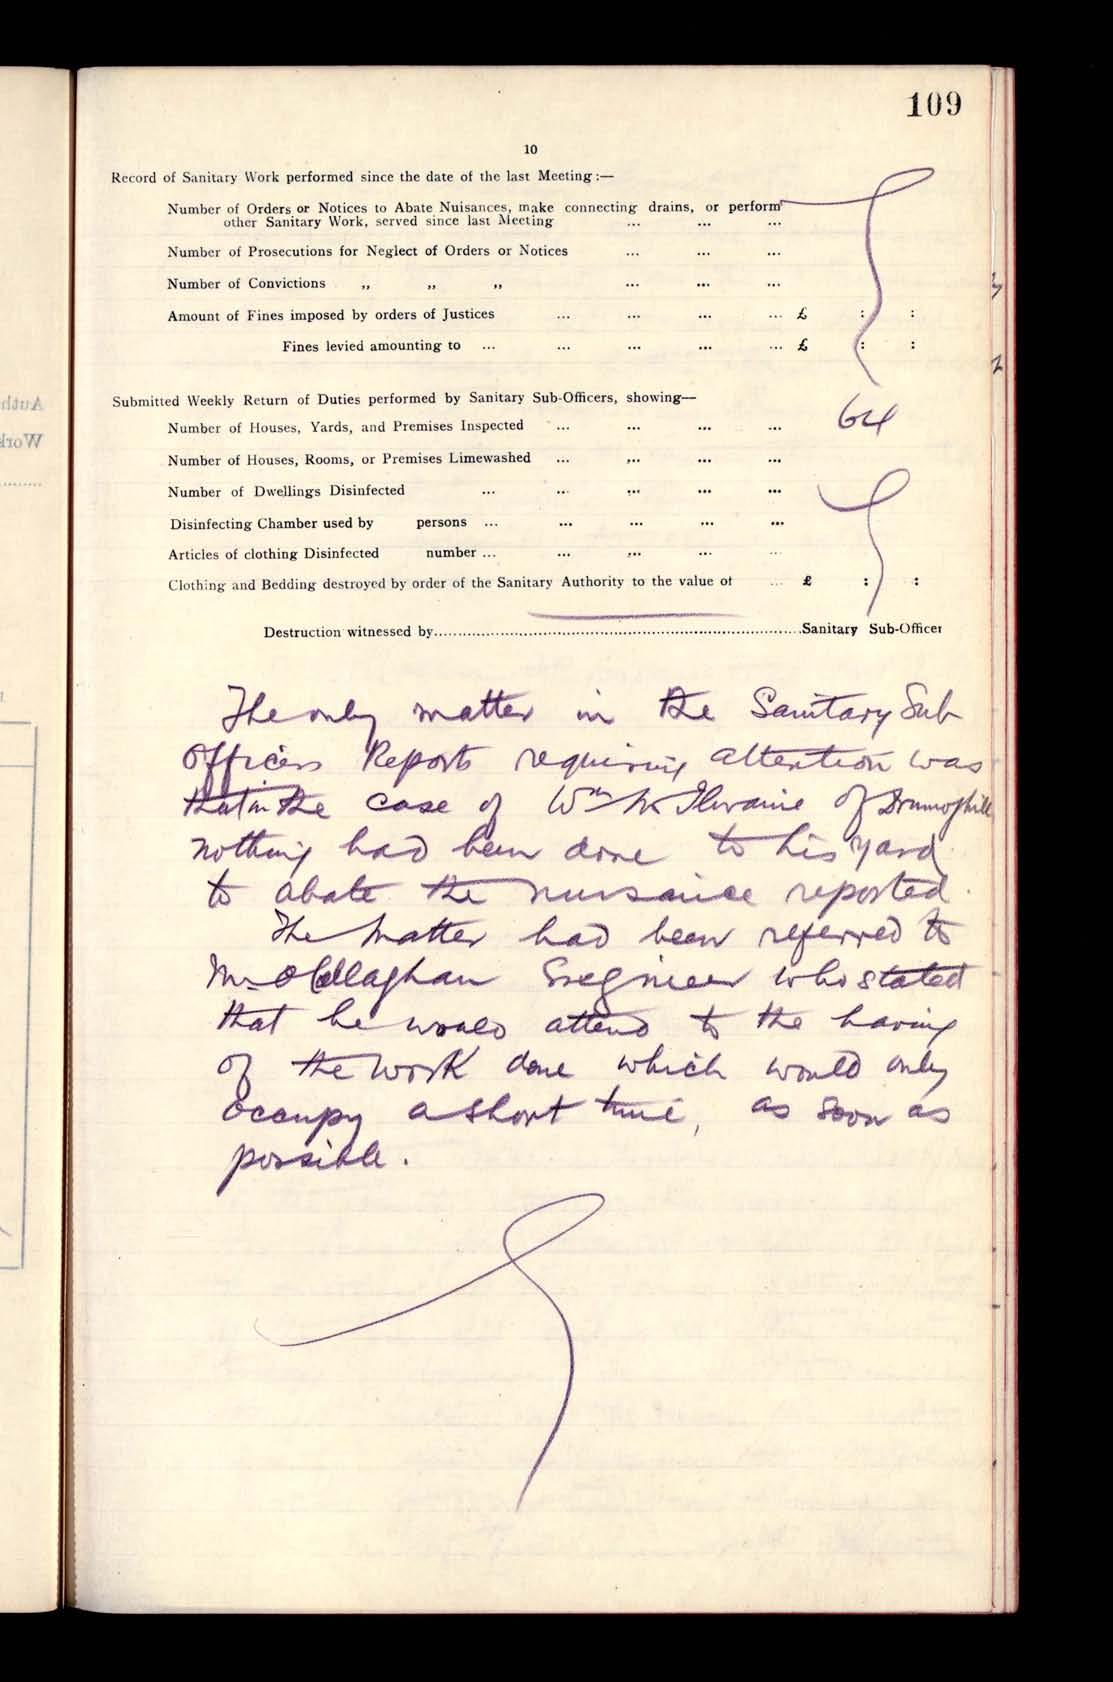 109
10
Record of Sanitary Work performed since the date of the last Meeting:—
Number of Orders or Notices to Abate Nuisances, make connecting drains, or perform
other Sanitary Work, served since last Meeting ... ... ...
Number of Prosecutions for Neglect of Orders or Notices ... ... ...
Number of Convictions „ „ „ ... ... ...
Amount of Fines imposed by orders of Justices ... ... ... ... £ : :
Fines levied amounting to ... ... ... ... ... £ : :
Submitted Weekly Return of Duties performed by Sanitary Sub-Officers, showing—
Number of Houses, Yards, and Premises Inspected ... ... ... ... 64
Number of Houses, Rooms, or Premises Limewashed ... ... ... ...
Number of Dwellings Disinfected ... ... ... ... ...
Disinfecting Chamber used by persons ... ... ... ... ...
Articles of clothing Disinfected number ... ... ... ... ...
Clothing and Bedding destroyed by order of the Sanitary Authority to the value of ... £ : :
Destruction witnessed by..........Sanitary Sub-Officer
The only matter in the Sanitary Sub
Officers Reports requiring attention was
that in the case of Wm McIlwaine of
nothing had been done to his yard
to abate the nuisance reported.
The matter had been referred to
Mr O'Callaghan Engineer who stated
that he would attend to the having
of the work done which would only
occupy a short time, as soon as
possible.
Auth
Work